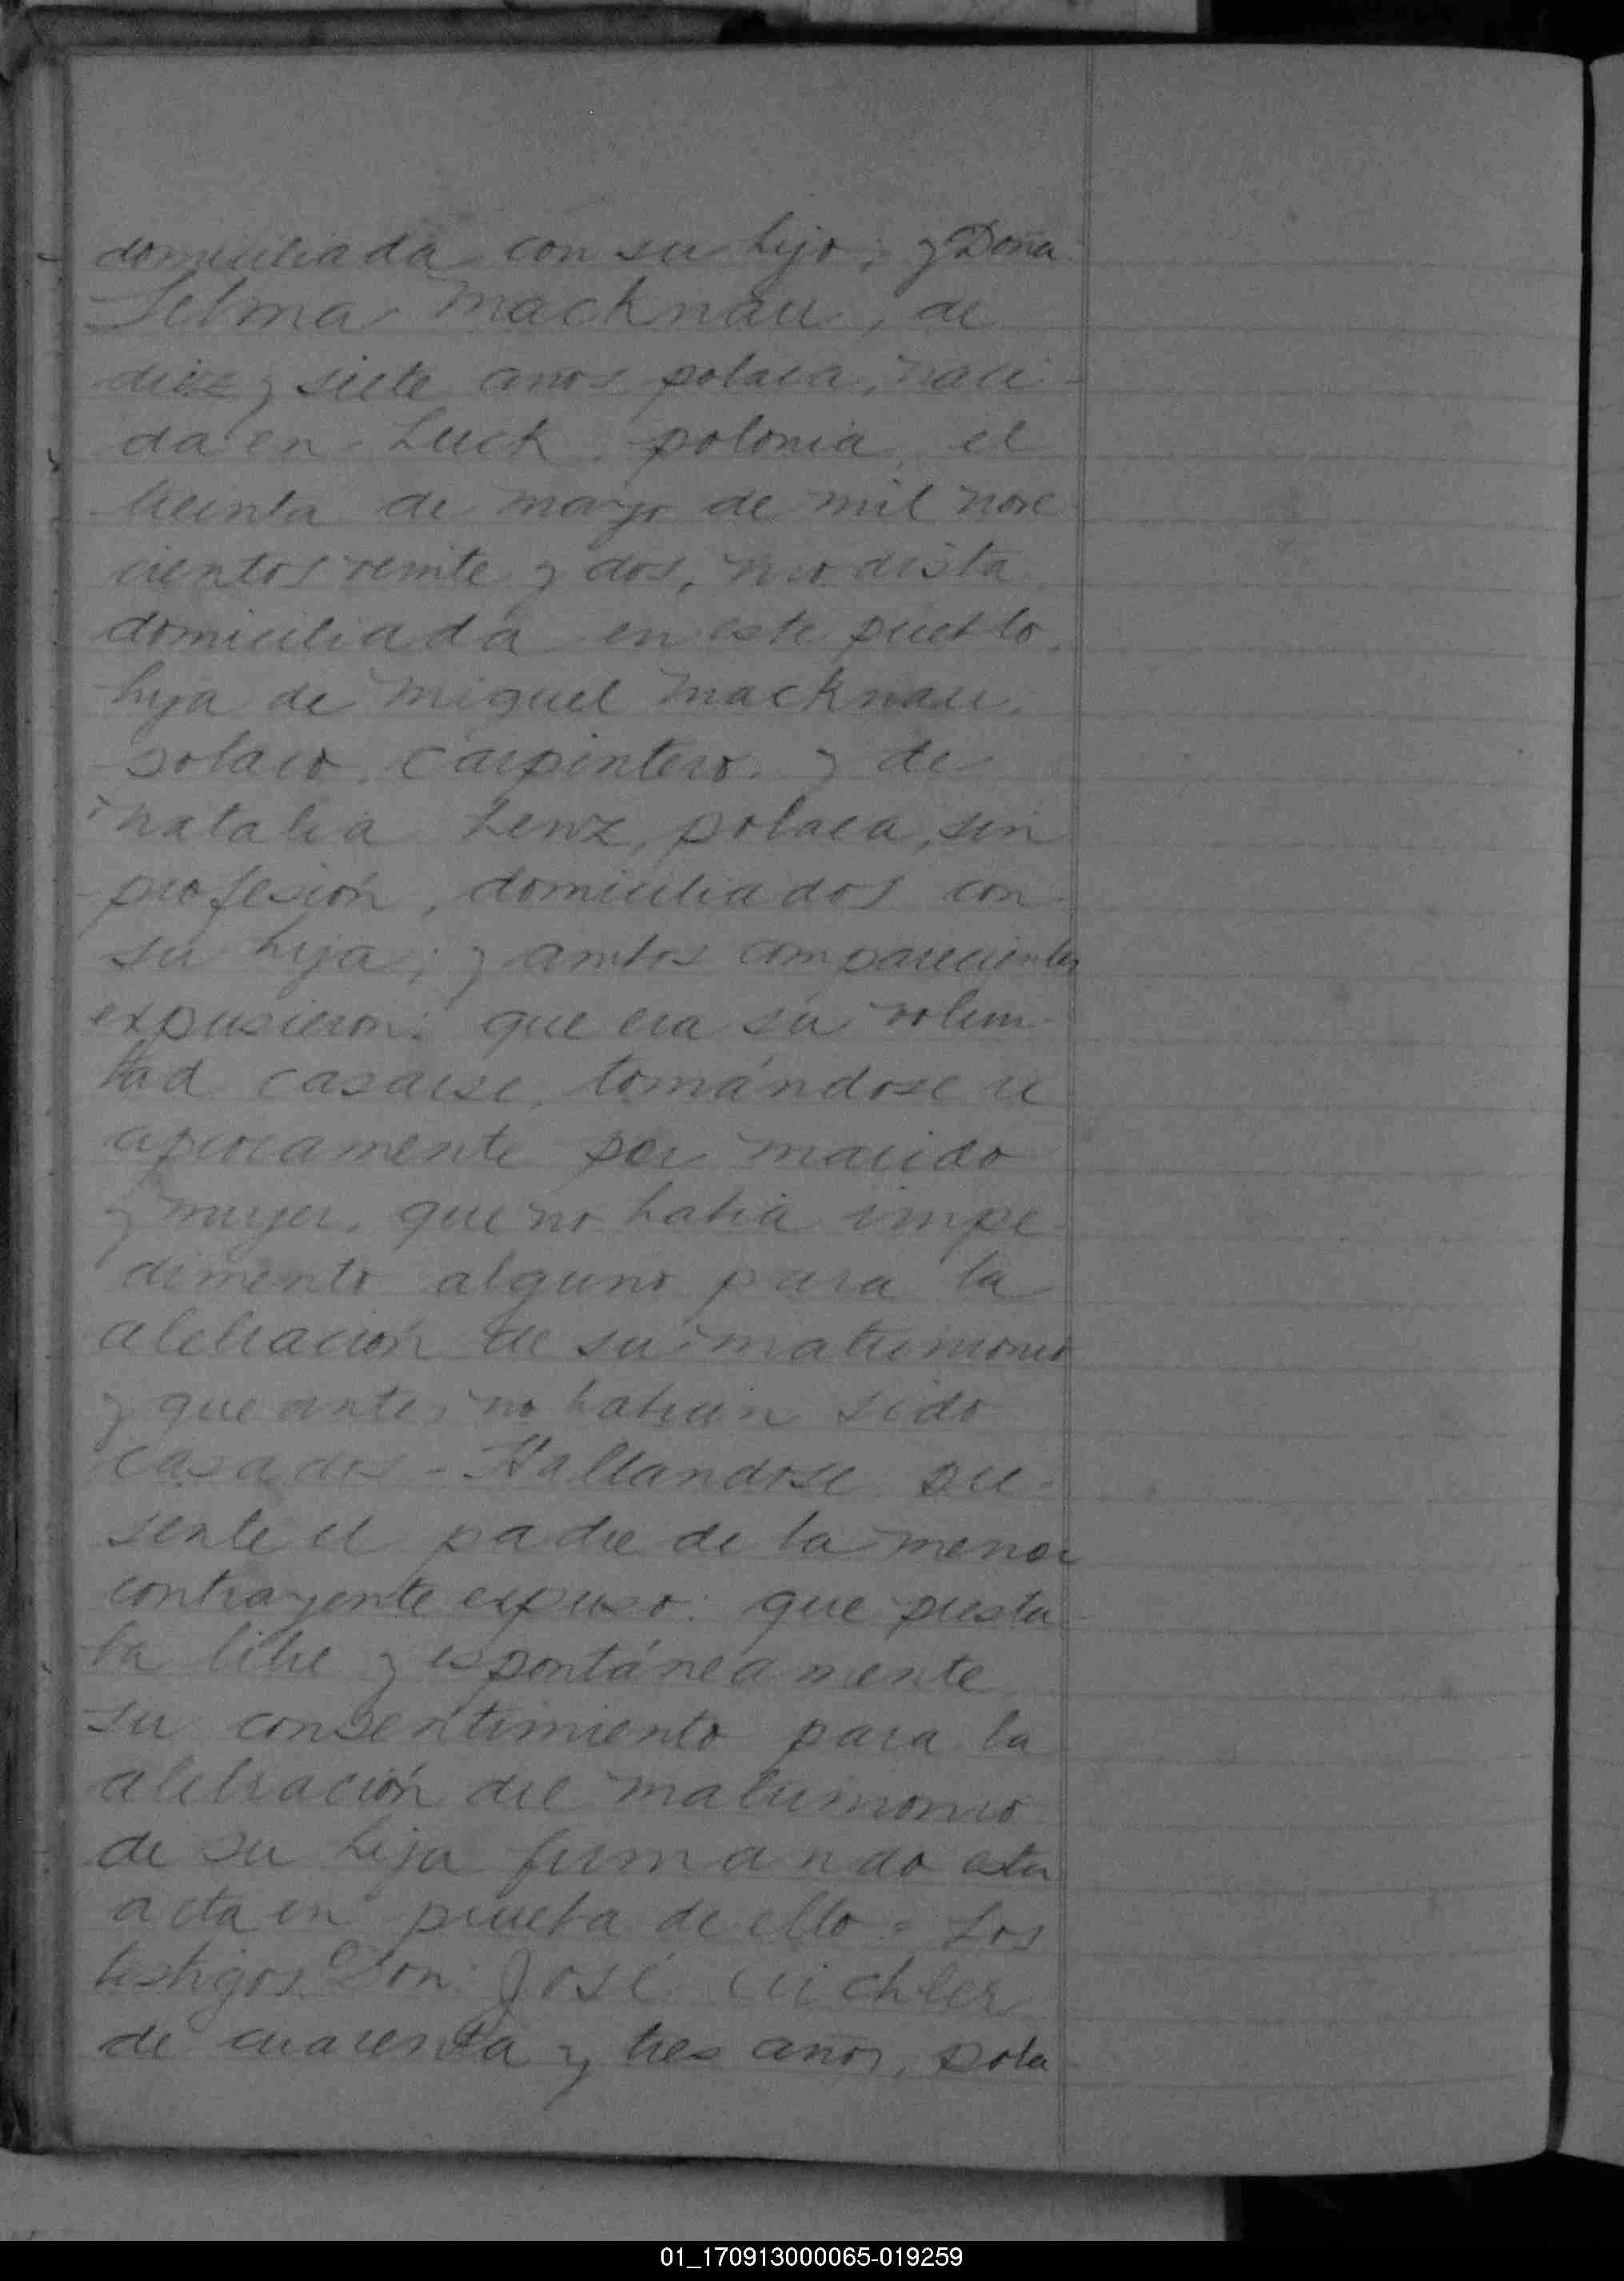 domiciliada con su hijo; y Doña
Selma Macknau, de
diez y siete años polaca, naci-
da en Luck polonia, el
treinta de mayo de mil nove
cientos veinte y dos, modista
domiciliada en este pueblo,
hija de Miguel Macknau,
polaco, carpintero, y de
Natalia Lenz, polaca, sin
profesión, domiciliados con
su hija; y ambos comparecientes
expusieron: que era su volun-
tad casarse, tomándose re
ciprocamente por marido
y mujer, que no había impe
dimento alguno para la
celebración de su matrimonio
y que antes no habian sido
casados - Hallandose pre-
sente el padre de la menor
contrayente expuso: que presta
ba libre y espontáneamente
su consentimiento para la
celebración del matrimonio
de su hija firmando esta
acta en prueba de ello = Los
testigos Don José
de cuarenta y tres años, pola-
01_170913000065-019259